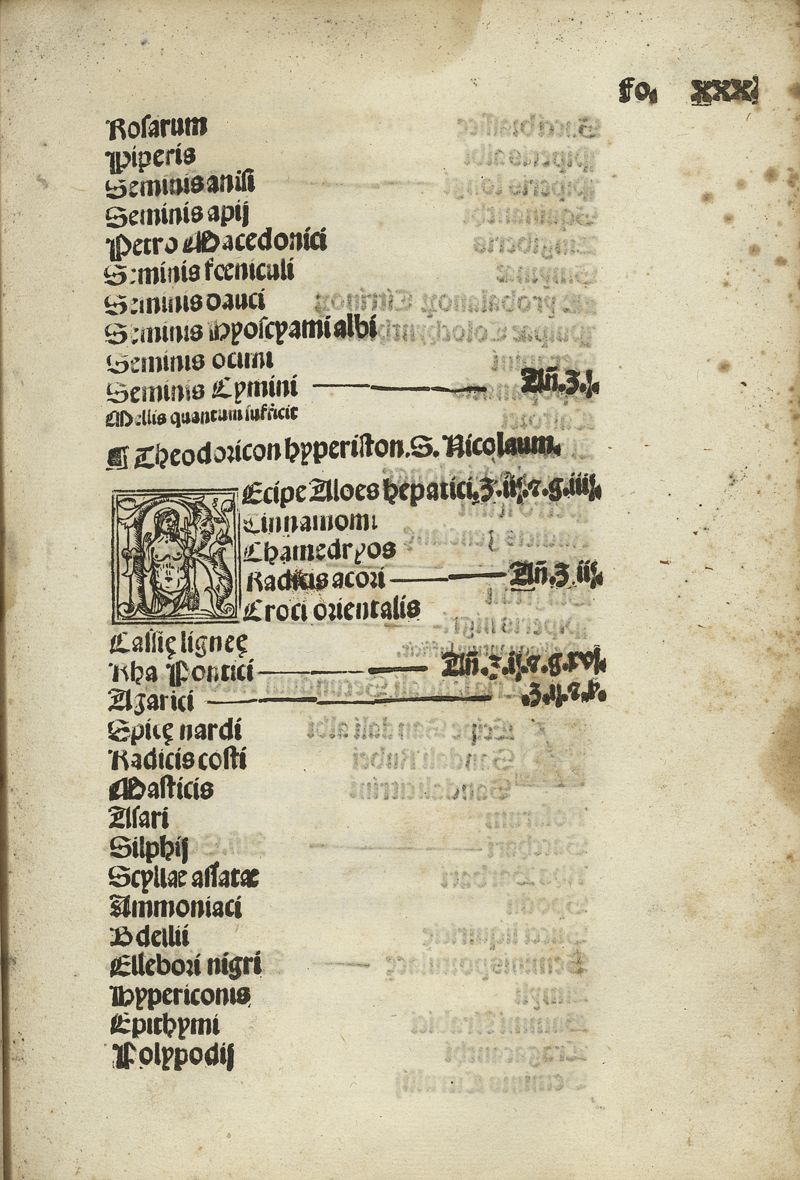 fo. XXX
Rosarum
Piperis
Seminis anisi
Seminis apij
Petro Macedonici
Seminis fœniculi
Seminis dauci
Seminis Hyoscyami albi
Seminis ocimi
Seminis Cymini An̄.ʒ.j.
Mellis quantum sufficit
¶ Theodoricon hyperiston. S. Nicolaum.
REcipe Aloes hepatici.ʒ.
Cinnamomi
Chamedryos
Radicis acori An̄.ʒ.ij.
Croci orientalis
Cassię ligneę
Rha Pontici An̄.ʒ.
Agarici
Spicę nardi
Radicis costi
Masticis
Asari
Silphij
Scyllae assatae
Ammoniaci
Bdellii
Ellebori nigri
Hypericonis
Epithymi
Polypodij